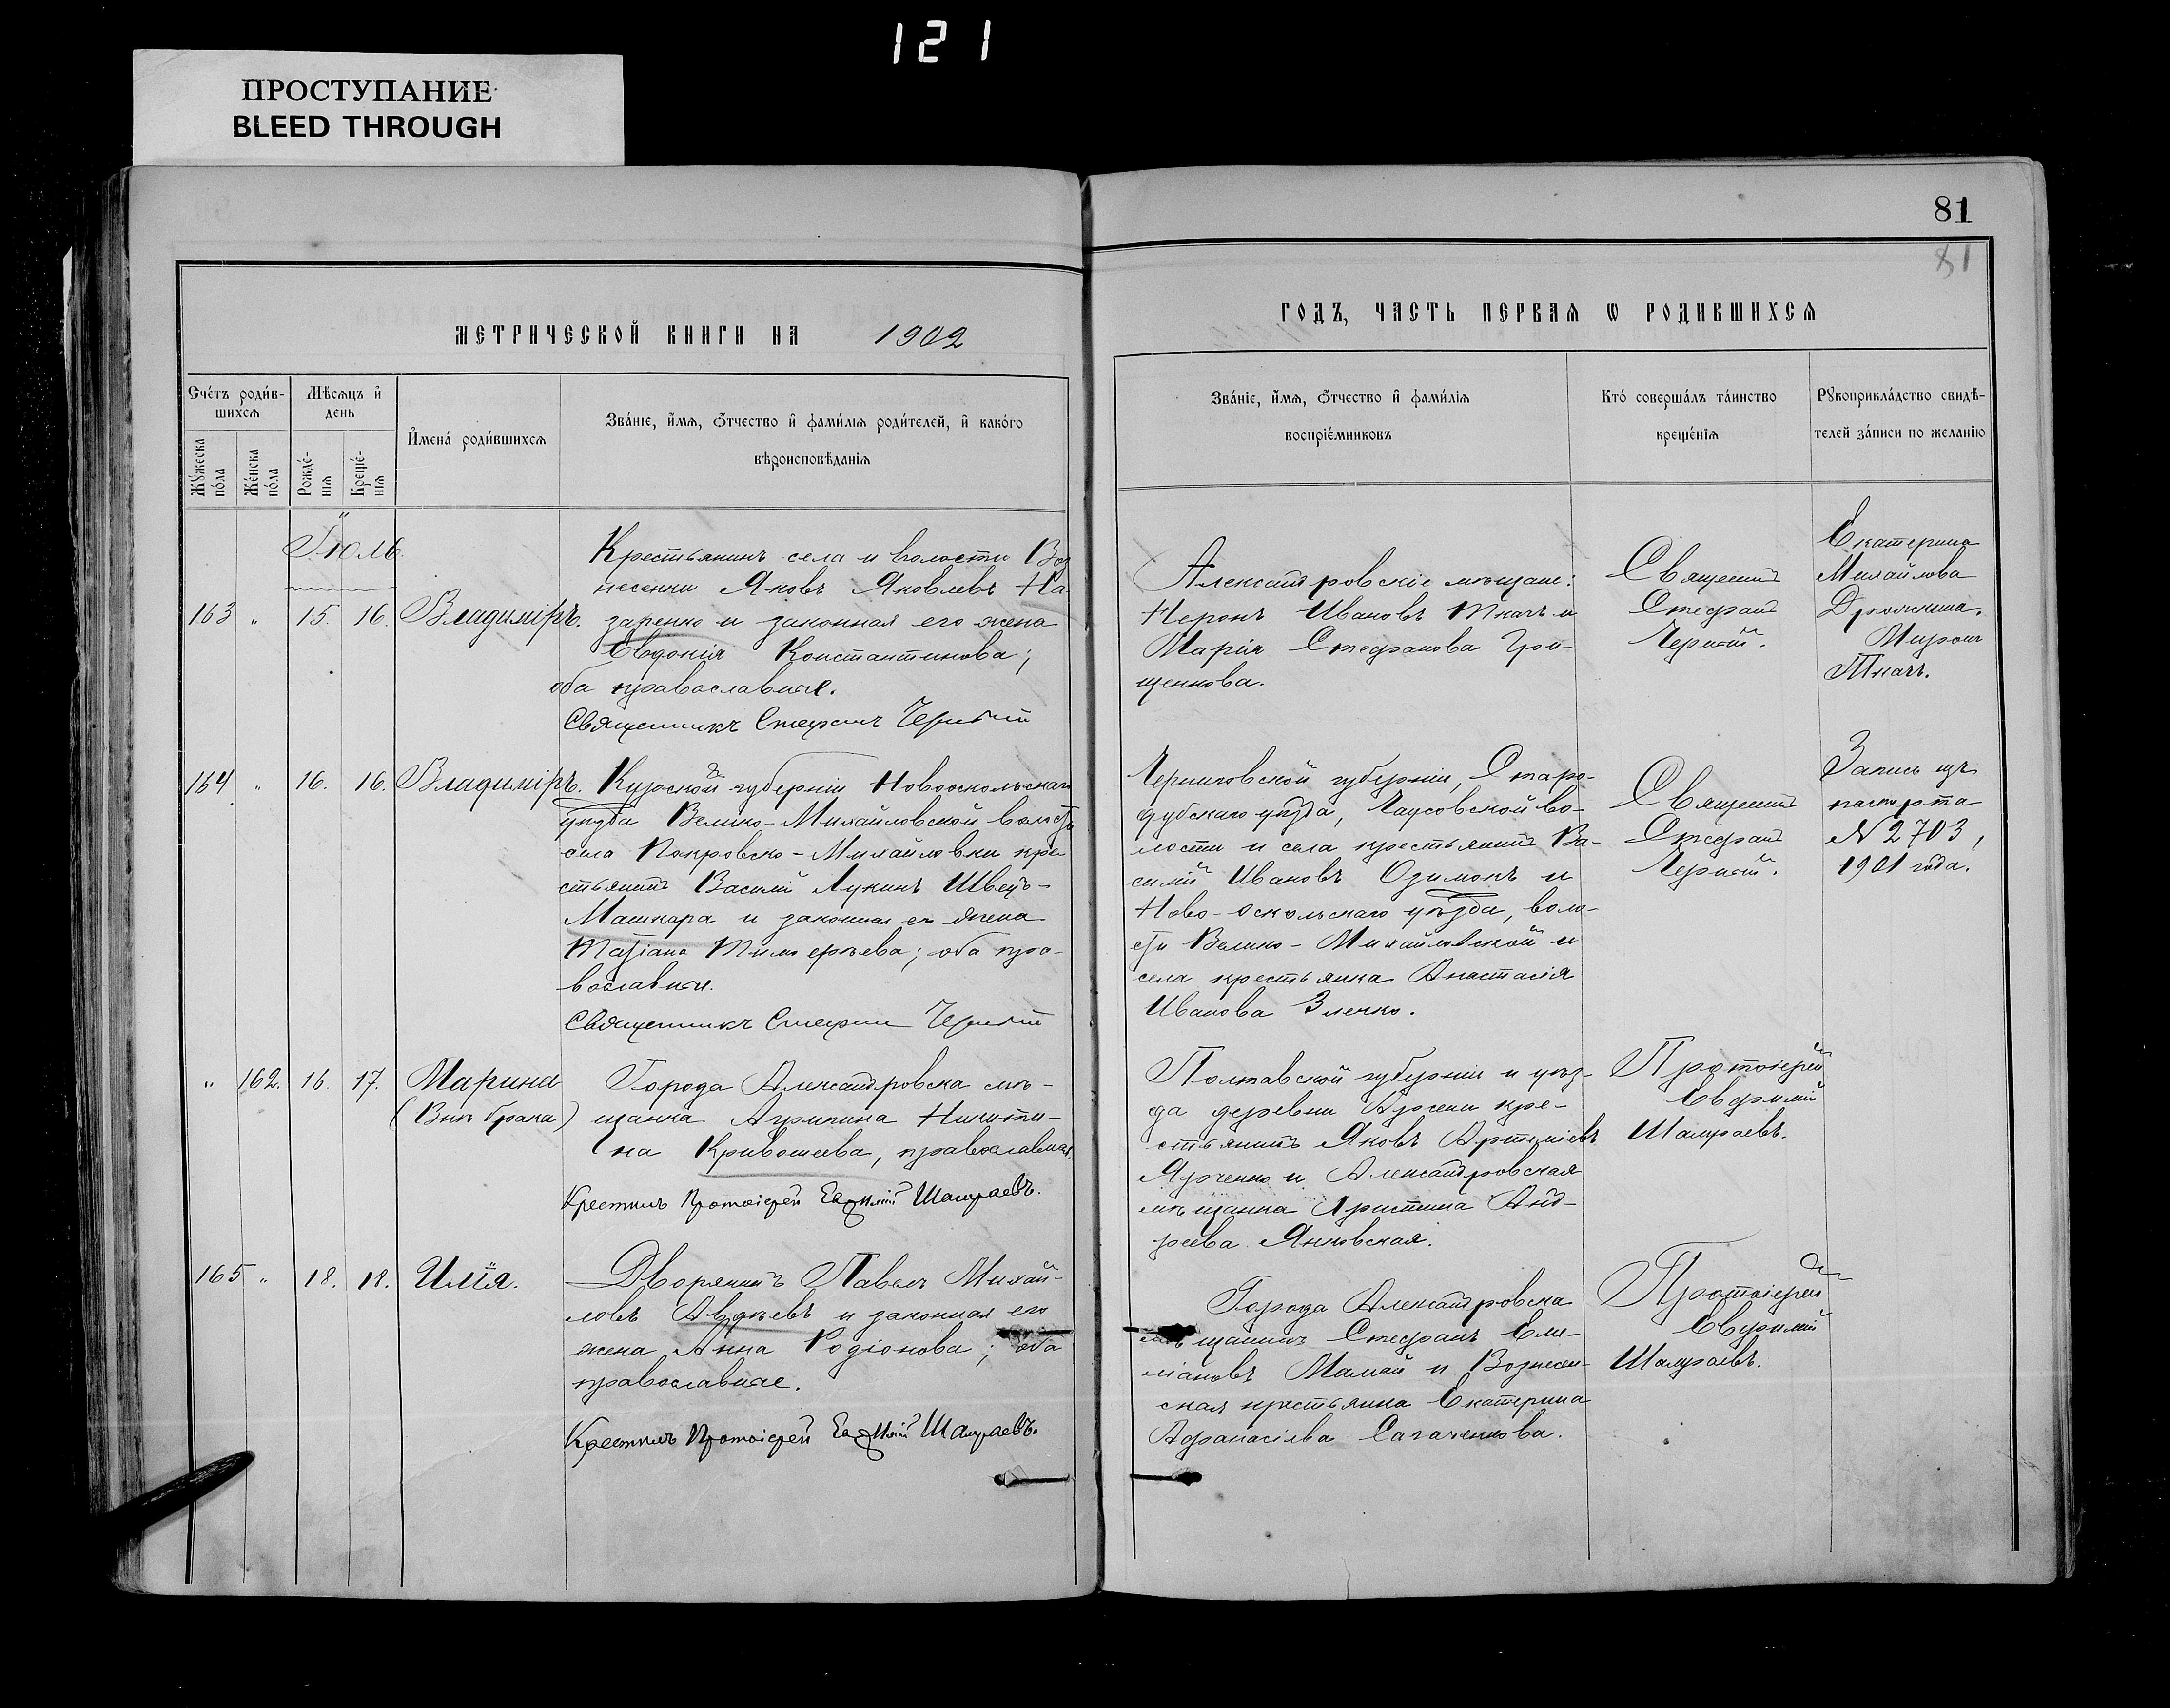 121
ПРОСТУПАНИЕ
BLEED THROUGH
81
81
МЕТРИЧЕСКОЙ КНИГИ НА 1902
ГОДЪ, ЧАСТЬ ПЕРВАЯ Ѡ РОДИВШИХСЯ
Сче́тъ роди́в-
шихся
Мѣсяцъ и҆
день
И҆мена̀ роди́вшихся
Зва́нїе, и҆́мя, ѻ҆́тчество и҆ фами́лїя роди́телей, и҆ како́го
вѣроисповѣ́данїя
Мꙋ́жеска
по́ла
Же́нска
по́ла
Рожде́-
нїя
Креще́-
нїя
Зва́нїе, и҆́мя, ѻ҆́тчество и҆ фами́лїя
воспрїе́мниковъ
Кто̀ соверша́лъ та́инство
креще́нїя
Рꙋкоприкла́дство свидѣ́-
телей за́писи по жела́нїю
Іюль
163 " 15. 16. Владиміръ.
Крестьянинъ села и волости Воз
несенки Яковъ Яковлевъ На
заренко и законная его жена
Евдокія Константинова;
оба православные.
Священникъ Стефанъ Черный
Александровскіе мѣщане:
Неронъ Ивановъ Ткачъ и
Марія Стефанова Гри-
щенкова.
Священникъ
Стефанъ
Черный.
Екатерина
Михайлова
Мирон
Ткачъ.
164 " 16. 16. Владиміръ.
Курской губерніи Новооскольскаго
уѣзда Велико-Михайловской волости
села Покровско-Михайловки кре
стьянинъ Василій Лукинъ Швецъ-
Машкара и законная его жена
Татіана Тимофеева; оба пра-
вославные.
Священникъ Стефанъ Черный
Черниговской губерніи, Старо-
дубскаго уѣзда, Чаусовской во-
лости и села крестьянинъ Ва-
силій Ивановъ Озимокъ и
Ново-Оскольскаго уѣзда, воло-
сти Велико-Михайловской и
села крестьянка Анастасія
Иванова Зленко.
Священникъ
Стефанъ
Черный.
Запись изъ
паспорта
№ 2703,
1901 года.
" 162. 16. 17. Марина
(Внѣ брака)
Города Александровска мѣ-
щанка Агрипина Никити-
на Кривошеева, православная.
Крестилъ Протоіерей Евфимій Шамраевъ.
Полтавской губерніи и уѣз-
да деревни кре-
стьянинъ Яковъ Артеміевъ
Ярченко и Александровская
мѣщанка Христина Анд-
реева Янковская.
Протоіерей
Евфимій
Шамраевъ.
165 " 18. 18. Илія.
Дворянинъ Павелъ Михай-
ловъ Авдѣевъ и законная его
жена Анна Родіонова; оба
православные.
Крестилъ Протоіерей Евфимій Шамраевъ.
Города Александровска
мѣщанинъ Стефанъ Еме-
ліановъ Мамай и Вознесен-
ская крестьянка Екатерина
Афанасіева Сагаченкова.
Протоіерей
Евфимій
Шамраевъ.